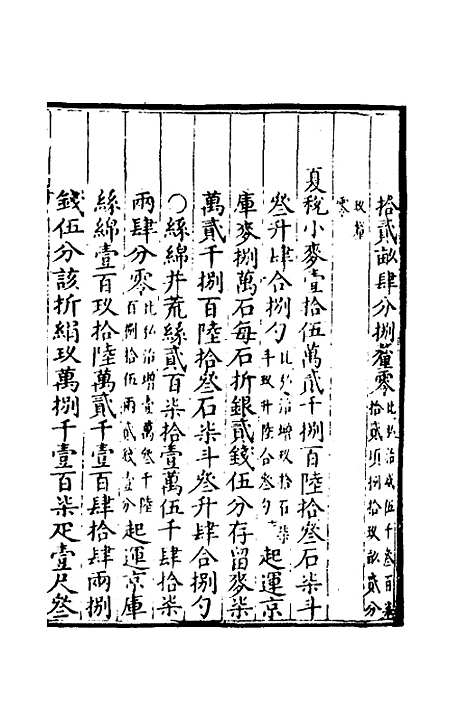 拾貳畝肆分捌釐零比弘治減伍千叁百柒
拾貳頃捌拾玖畝貳分
玖釐
零
夏稅小麥壹拾伍萬貳千捌百陸拾叁石柒斗
叁升肆合捌勺比弘治增玖拾石柒
斗玖升陸合叁勺起運京
庫麥捌萬石每石折銀貳錢伍分存留麥柒
萬貳千捌百陸拾叁石柒斗叁升肆合捌勺
○絲綿并荒絲貳百柒拾壹萬伍千肆拾柒
兩肆分零比弘治增壹萬叁千陸
百捌拾伍兩貳錢壹分起運京庫
絲綿壹百玖拾陸萬貳千壹百肆拾肆兩捌
錢伍分該折絹玖萬捌千壹百柒疋壹尺叁